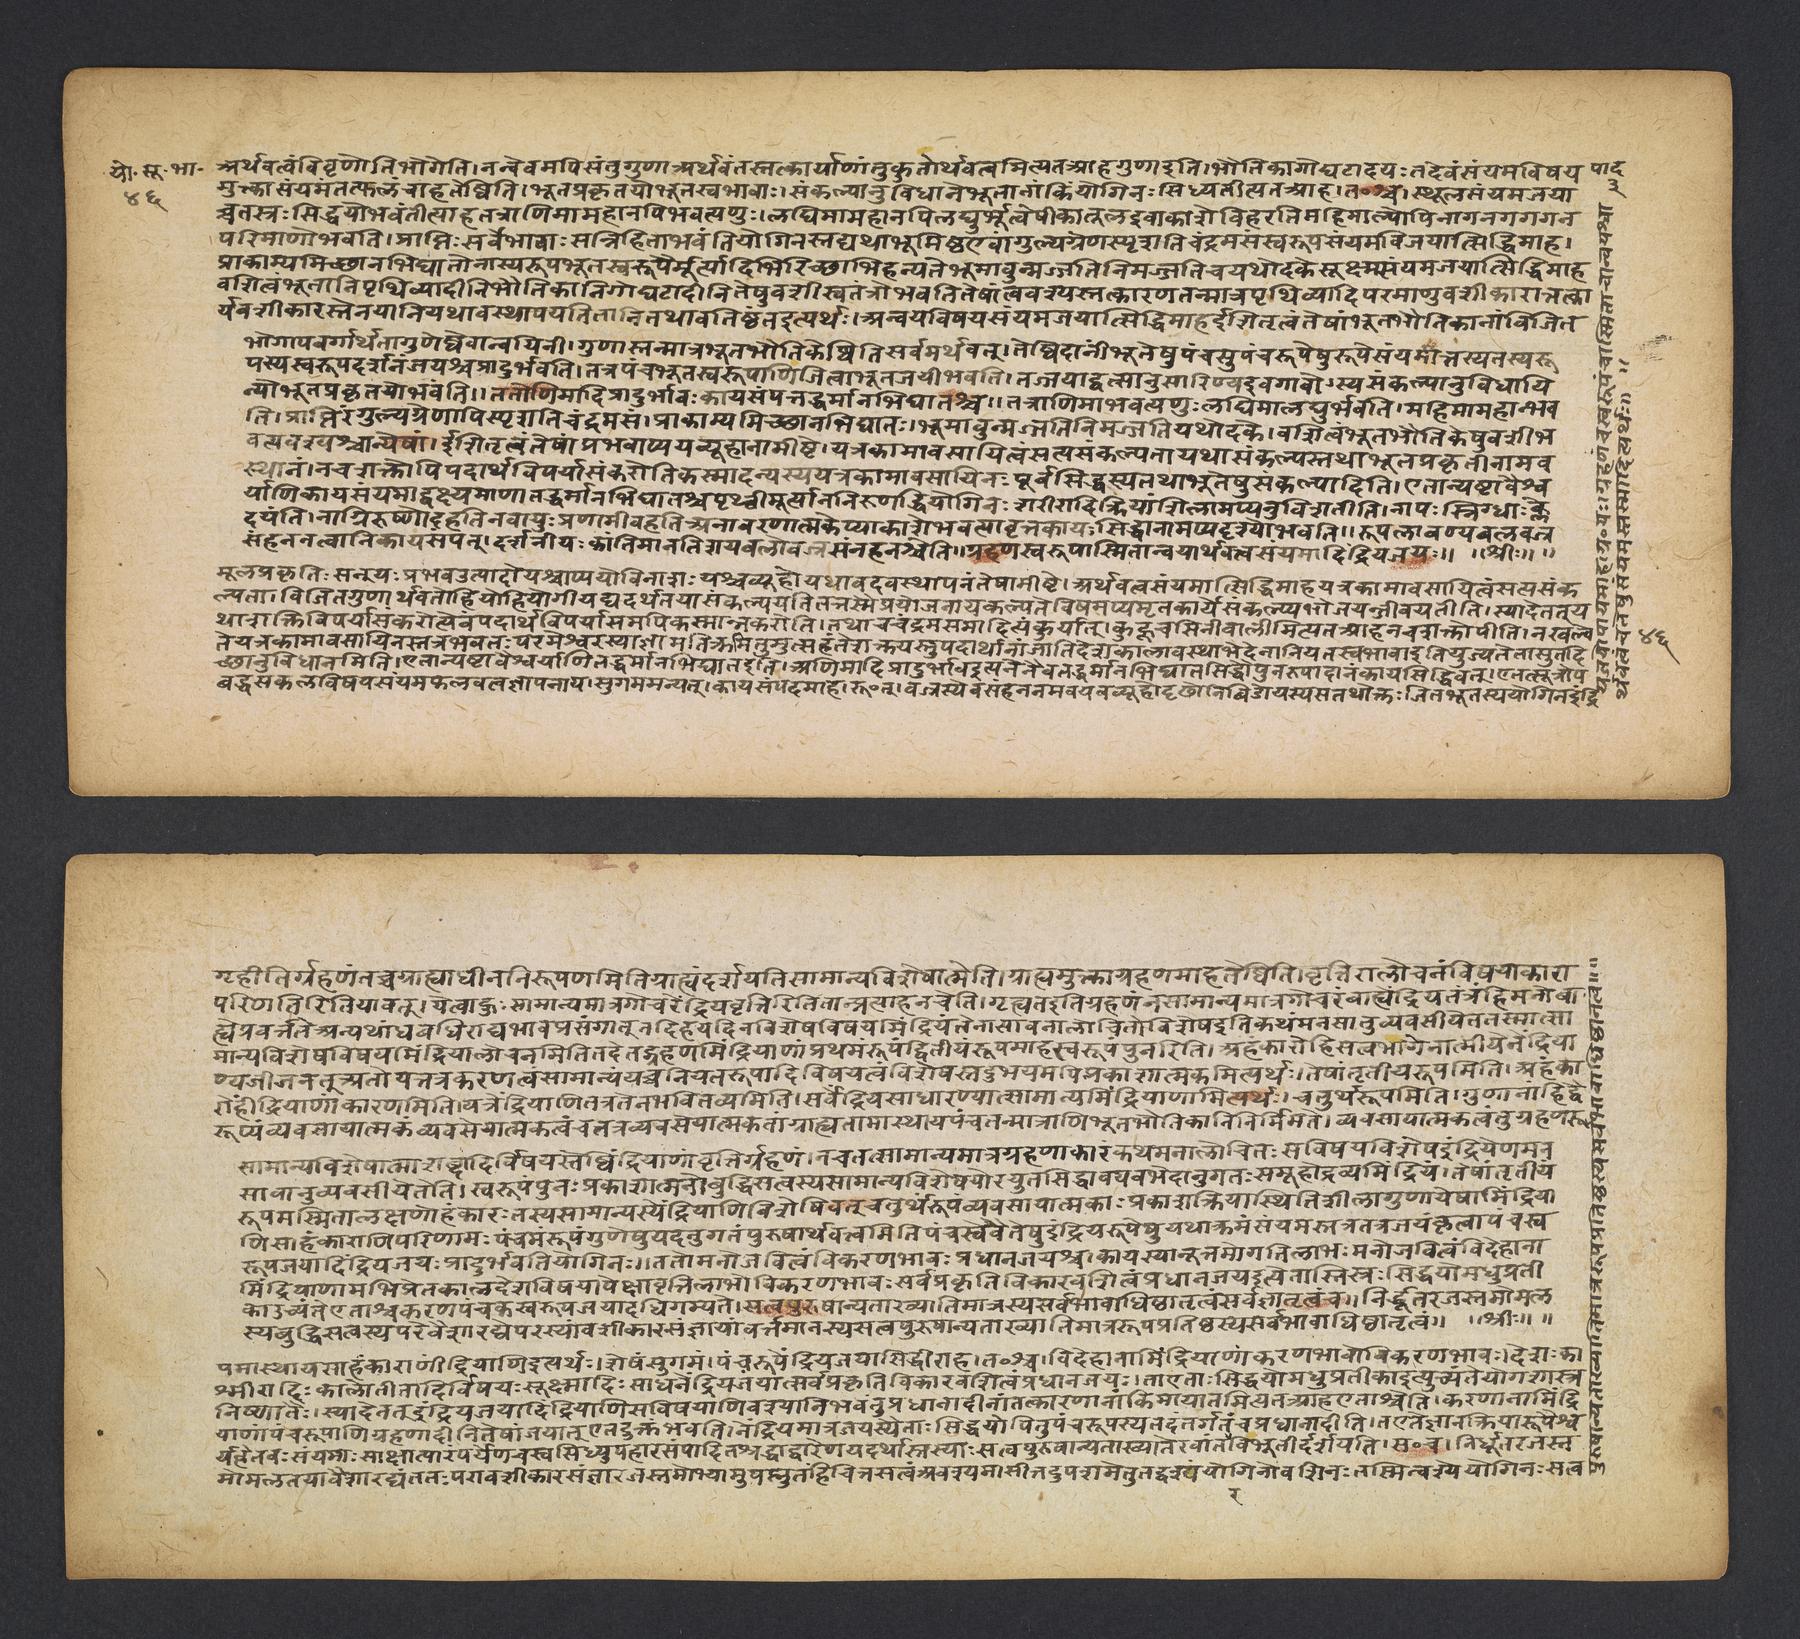 यो. सू. भा.
४६
पाद
३
अर्थवत्वं विवृणोति भोगेति । नन्वेवमपि संतु गुणा अर्थवंतस्तत्कार्याणां तु कुतोर्थवत्वमित्यत आह गुणा इति । भौतिका गोघटादयः तदेवं संयमविषय
मुक्त्वा संयमतत्फलं चाह तेष्विति । भूतप्रकृतयो भूतस्वभावाः । संकल्पानुविधाने भूतानां किं योगिनः सिध्यतीत्यत आह । त०श्च । स्थूलसंयमजया
च्चतस्रः सिद्धयो भवंतीत्याह तत्राणिमा महानपि भवत्यणुः । लघिमा महानपि लघुर्भूत्वेषीकातूल इवाकाशे विहरति महिमाल्पोपि नागनगगगन
परिमाणो भवति । प्राप्तिः सर्वे भावाः सन्निहिता भवंति योगिनस्तद्यथा भूमिष्ठ एवांगुल्यग्रेण स्पृशति चंद्रमसं स्वरूपसंयमविजयात्सिद्धिमाह ।
प्राकाम्यमिच्छानभिघातो नास्य रूपं भूतस्वरूपैर्मूर्त्यादिभिरिच्छाभिहन्यते भूमावुन्मज्जति निमज्जति च यथोदके सूक्ष्मसंयमजयात्सिद्धिमाह
वशित्वं भूतानि पृथिव्यादीनि भौतिकानि गोघटादीनि तेषु वशी स्वतंत्रो भवति तेषां त्ववश्यस्तत्कारणतन्मात्रपृथिव्यादिपरमाणुवशीकारात्तत्का
र्यवशीकारस्तेन यानि यथावस्थापयति तानि तथावतिष्ठंत इत्यर्थः । अन्वयविषयसंयमजयात्सिद्धिमाह ईशितृत्वं तेषां भूतभौतिकानां विजित
भोगापवर्गार्थता गुणेष्वेवान्वयिनी । गुणास्तन्मात्रभूतभौतिकेष्विति सर्वमर्थवत् । तेष्विदानीं भूतेषु पंचसु पंचरूपेषु रूपे संयमात्तस्य तस्य रू
पस्य स्वरूपदर्शनं जयश्च प्रादुर्भवति । तत्र पंचभूतस्वरूपाणि जित्वा भूतजयी भवति । तज्जयाद्वत्सानुसारिण्य इव गावोऽस्य संकल्पानुविधायि
न्यो भूतप्रकृतयो भवंति ।। ततोणिमादिप्रादुर्भावः कायसंपत्तद्धर्मानभिघातश्च ।। तत्राणिमा भवत्यणुः लघिमा लघुर्भवति । महिमा महान्भव
ति । प्राप्तिरंगुल्यग्रेणापि स्पृशति चंद्रमसं । प्राकाम्यमिच्छानभिघातः । भूमावुन्मज्जति निमज्जति यथोदके । वशित्वं भूतभौतिकेषु वशी भ
वत्यवश्यश्चान्येषां । ईशितृत्वं तेषां प्रभवाप्ययव्यूहानामीष्टे । यत्रकामावसायित्वं सत्यसंकल्पता यथा संकल्पस्तथा भूतप्रकृतीनामव
स्थानं । न च शक्तोपि पदार्थविपर्यासं करोति कस्मादन्यस्य यत्रकामावसायिनः पूर्वसिद्धस्य तथा भूतेषु संकल्पादिति । एतान्यष्टावैश्व
र्याणि कायसंयमाद्वक्ष्यमाणा तद्धर्मानभिघातश्च पृथ्वी मूर्त्या न निरुणद्धि योगिनः शरीरादिक्रियां शिलामप्यनुविशतीति । नापः स्निग्धाः क्ले
दयंति । नाग्निरुष्णो दहति न वायुः प्रणामी वहति अनावरणात्मकेप्याकाशे भवत्यावृतकायः सिद्धानामप्यदृश्यो भवति ।। रूपलावण्यबलवज्र
संहननत्वानि कायसंपत् । दर्शनीयः कांतिमानतिशयबलो वज्रसंनहनश्चेति ।। ग्रहणस्वरूपास्मितान्वयार्थवत्वसंयमादिंद्रियजयः ।। ।।श्रीः।। ।।
मूलप्रकृतिः सन् यः प्रभव उत्पादो यश्चाप्ययो विनाशः यश्च व्यूहो यथावदवस्थापनं तेषामीष्टे । अर्थवत्वसंयमात्सिद्धिमाह यत्रकामावसायित्वं सत्यसंक
ल्पता । विजितगुणार्थवतो हि यो हि योगी यद्यदर्थतया संकल्पयति तत्तस्मै प्रयोजनाय कल्पते विषमप्यमृतकार्ये संकल्प्य भोजयन्जीवयतीति । स्यादेतत् य
था शक्तिविपर्यासं करोत्येवं पदार्थविपर्यासमपि कस्मान्न करोति । तथा च चंद्रमसमादित्यं कुर्यात् । कुहूं च सिनीवालीमित्यत आह न च शक्तोपीति । न खल्वे
ते यत्रकामावसायिनस्तत्रभवतः परमेश्वरस्याज्ञामतिक्रमितुमुत्सहंते शक्तयस्तु पदार्थानां जातिदेशकालावस्थाभेदेनानियतस्वभावा इति युज्यते तासु तदि
च्छानुविधानमिति । एतान्यष्टावैश्वर्याणि तद्धर्मानभिघात इति । अणिमादिप्रादुर्भाव इत्यनेनैव तद्धर्मानभिघातसिद्धौ पुनरुपादानं कायसिद्धिवत् । एतत्सूत्रोप
बद्धसकलविषयसंयमफलवत्वज्ञापनाय । सुगममन्यत् । कायसंपदमाह । रू०त् । वज्रस्येव संहननमवयवव्यूहो दृढो निबिडो यस्य स तथोक्तः जितभूतस्य योगिन इंद्रि
४६
गृहीतिर्ग्रहणं तच्च ग्राह्याधीननिरूपणमिति ग्राह्यं दर्शयति सामान्यविशेषात्मेति । ग्राह्यमुक्त्वा ग्रहणमाह तेष्विति । वृत्तिरालोचनं विषयाकारा
परिणतिरिति यावत् । ये त्वाहुः सामान्यमात्रगोचरेंद्रियवृत्तिरिति तान्प्रत्याह न चेति । गृह्यत इति ग्रहणं न सामान्यमात्रगोचरं बाह्येंद्रियतंत्रं हि मनो बा
ह्ये प्रवर्त्तते अन्यथांधबधिराद्यभावप्रसंगात् तदिह यदि न विशेषविषयमिंद्रियं तेनासावनालोचितो विशेष इति कथं मनसानुव्यवसीयेत तस्मात्सा
मान्यविशेषविषयमिंद्रियालोचनमिति तदेतद्ग्रहणमिंद्रियाणां प्रथमं रूपं द्वितीयं रूपमाह स्वरूपं पुनरिति । अहंकारो हि सत्वभागेनात्मीयेनेंद्रिया
ण्यजीजनत् अतो यत्तत्र करणत्वं सामान्यं यच्च नियतरूपादिविषयत्वं विशेषस्तदुभयमपि प्रकाशात्मकमित्यर्थः । तेषां तृतीयं रूपमिति । अहंका
रो हींद्रियाणां कारणमिति । यत्रेंद्रियाणि तत्र तेन भवितव्यमिति । सर्वेंद्रियसाधारण्यात्सामान्यमिंद्रियाणामित्यर्थः । चतुर्थं रूपमिति । गुणानां हि द्वै
रूप्यं व्यवसायात्मकं व्यवसेयात्मकत्वं च तत्र व्यवसेयात्मकतां ग्राह्यतामास्थाय पंचतन्मात्राणि भूतभौतिकानि निर्मिमते । व्यवसायात्मकत्वं तु ग्रहणरू
सामान्यविशेषात्मा शब्दादिर्विषयस्तेष्विंद्रियाणां वृत्तिर्ग्रहणं । न च तत्सामान्यमात्रग्रहणाकारं कथमनालोचितः स विषयविशेष इंद्रियेण मन
सा वानुव्यवसीयेतेति । स्वरूपं पुनः प्रकाशात्मनो बुद्धिसत्वस्य सामान्यविशेषयोरयुतसिद्धावयवभेदानुगतः समूहो द्रव्यमिंद्रियं । तेषां तृतीयं
रूपमस्मितालक्षणोहंकारः तस्य सामान्यस्येंद्रियाणि विशेषवत् चतुर्थं रूपं व्यवसायात्मकाः प्रकाशक्रियास्थितिशीला गुणा येषामिंद्रिया
णि साहंकाराणि परिणामः पंचमं रूपं गुणेषु यदनुगतं पुरुषार्थवत्वमिति पंचस्वेवैतेषु इंद्रियरूपेषु यथाक्रमं संयमस्तत्र तत्र जयं कृत्वा पंचस्व
रूपजयादिंद्रियजयः प्रादुर्भवति योगिनः ।। ततो मनोजवित्वं विकरणभावः प्रधानजयश्च । कायस्यानुत्तमो गतिलाभः मनोजवित्वं विदेहाना
मिंद्रियाणामभिप्रेतकालदेशविषयापेक्षा वृत्तिलाभो विकरणभावः सर्वप्रकृतिविकारवशित्वं प्रधानजय इत्येतास्तिस्रः सिद्धयो मधुप्रती
का उच्यंते एताश्च करणपंचकस्वरूपजयादधिगम्यंते । सत्वपुरुषान्यताख्यातिमात्रस्य सर्वभावाधिष्ठातृत्वं सर्वज्ञातृत्वं च ।। निर्द्धूतरजस्तमोमल
स्य बुद्धिसत्वस्य परे वैशारद्ये परस्यां वशीकारसंज्ञायां वर्त्तमानस्य सत्वपुरुषान्यताख्यातिमात्ररूपप्रतिष्ठस्य सर्वभावाधिष्ठातृत्वं ।। ।।श्रीः।। ।।
पमास्थाय साहंकाराणींद्रियाणि इत्यर्थः । शेषं सुगमं । पंचरूपेंद्रियजयात्सिद्धीराह । त०श्च । विदेहानामिंद्रियाणां करणभावो विकरणभावः । देशः का
श्मीरादिः कालोतीतादिर्विषयः सूक्ष्मादिः साधनेंद्रियजयात्सर्वप्रकृतिविकारवशित्वं प्रधानजयः । ता एताः सिद्धयो मधुप्रतीका इत्युच्यंते योगशास्त्र
निष्णातैः । स्यादेतत् इंद्रियजयादिंद्रियाणि सविषयाणि वश्यानि भवंतु प्रधानादीनां तत्कारणानां किमायातमित्यत आह एताश्चेति । करणानामिंद्रि
याणां पंचरूपाणि ग्रहणादीनि तेषां जयात् एतदुक्तं भवति । नेंद्रियमात्रजयस्यैताः सिद्धयो पितु पंचरूपस्य तदंतर्गतं च प्रधानादीति । त एते ज्ञानक्रियारूपैश्व
मोमलतया वैशारद्यं ततः परा वशीकारसंज्ञा रजस्तमोभ्यामुपप्लुतं हि चित्तसत्वं अवश्यमासीत्तदुपरमे तु तद्वश्यं योगिनो वशिनः तस्मिन्वश्ये योगिनः सत्व
र